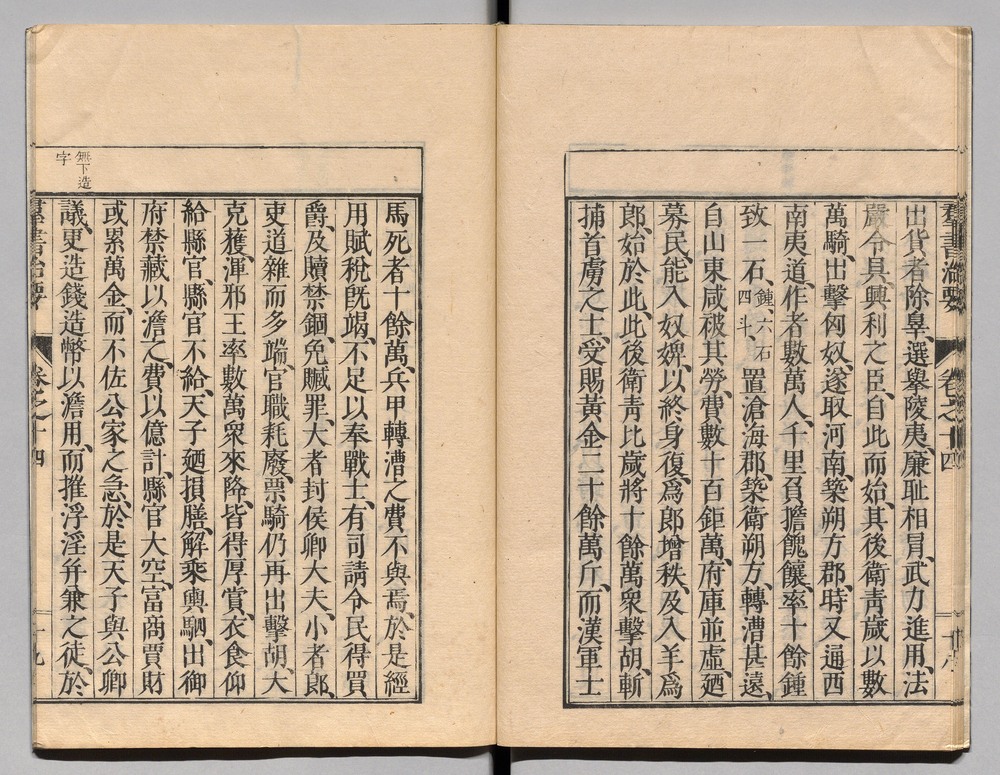 羣書治要 卷之十四 十八
出貨者除辠、選舉陵夷、廉耻相冒、武力進用、法
嚴令具、興利之臣、自此而始、其後衛青歲以數
萬騎、出擊匈奴、遂取河南、築朔方郡、時又通西
南夷道、作者數萬人、千里負擔餽饟、率十餘鍾
致一石、鍾、六石四斗、置滄海郡、築衛朔方、轉漕甚遠、
自山東咸被其勞、費數十百鉅萬、府庫並虛、廼
募民、能入奴婢、以終身復、爲郎增秩、及入羊爲
郎、始於此、此後衛青比歲將十餘萬衆擊胡、斬
捕首虜之士、受賜黃金二十餘萬斤、而漢軍士
馬死者十餘萬、兵甲轉漕之費不與焉、於是經
用賦稅旣竭、不足以奉戰士、有司請令民得買
爵、及贖禁錮、免贓罪、大者封侯卿大夫、小者郎、
吏道雜而多端、官職耗廢、票騎仍再出擊胡、大
克獲、渾邪王率數萬衆來降、皆得厚賞、衣食仰
給縣官、縣官不給、天子廼損膳、解乘輿駟、出御
府禁藏以澹之、費以億計、縣官大空、富商賈財
或累萬金、而不佐公家之急、於是天子與公卿
議、更造錢造幣以澹用、而摧浮淫幷兼之徒、於
無下造
字
羣書治要 卷之十四 十九